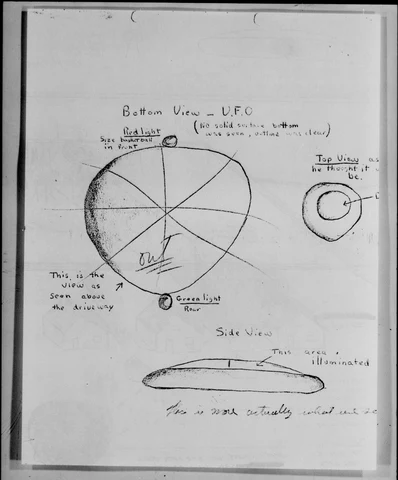 Bottom View - U.F.O
(No solid surface bottom
was seen, outline was clear)
Red light
Size basketball
in front
Top View as
he thought it
be.
out
This is the
view as
seen above
the driveway
Green light
Rear
Side View
This area
illuminated
This is more actually what was